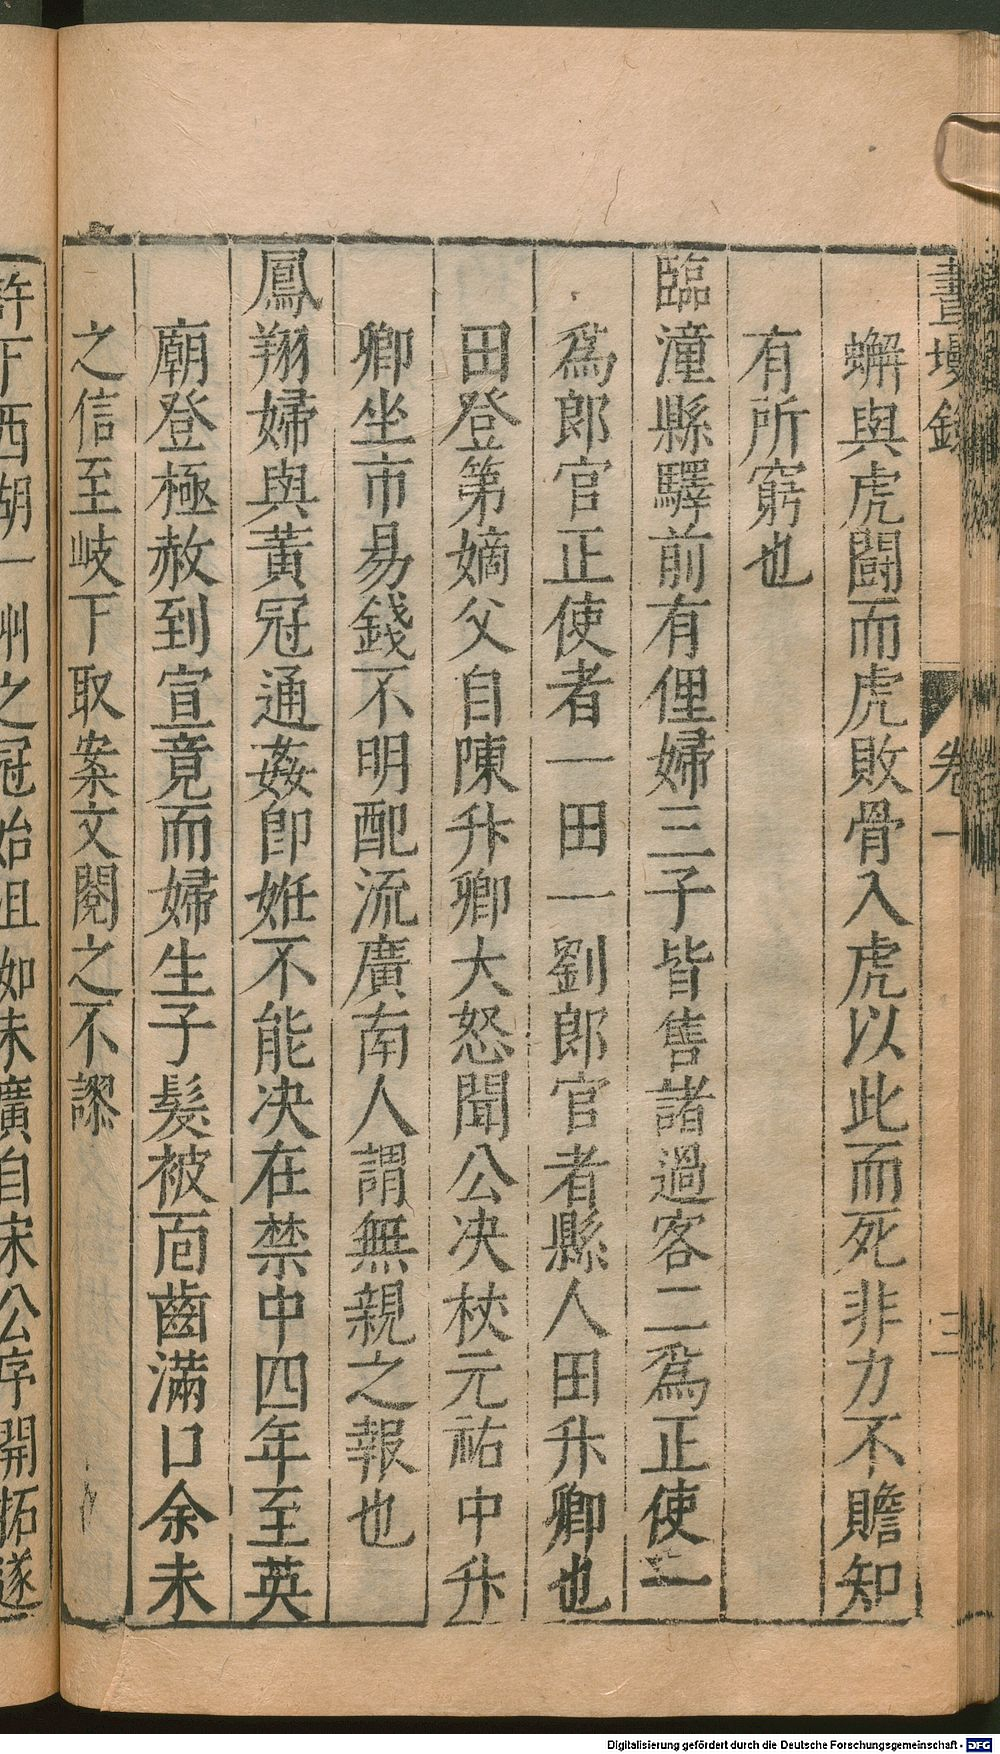 畫墁錄 卷一 三
蠏與虎鬪而虎敗骨入虎以此而死非力不贍知
有所窮也
臨潼縣驛前有俚婦三子皆售諸過客二爲正使一
爲郎官正使者一田一劉郎官者縣人田升卿也
田登第嫡父自陳升卿大怒聞公决杖元祐中升
卿坐市易錢不明配流廣南人謂無親之報也
鳳翔婦與黃冠通姦卽姙不能决在禁中四年至英
廟登極赦到宣竟而婦生子髮被面齒滿口余未
之信至岐下取案文閱之不謬
許下西湖一州之冠始且如未廣自宋公序開拓遂
Digitalisierung gefördert durch die Deutsche Forschungsgemeinschaft - DFG